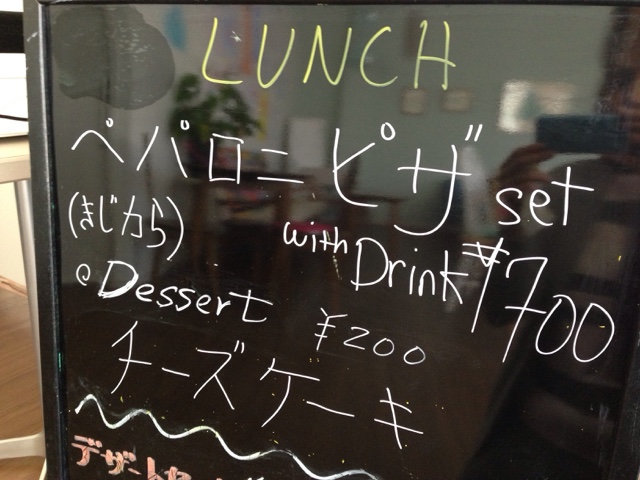 LUNCH
ペパロニ ピザ set
(まじから) with Drink ¥700
@Dessert ¥200
チーズケーキ
デザート